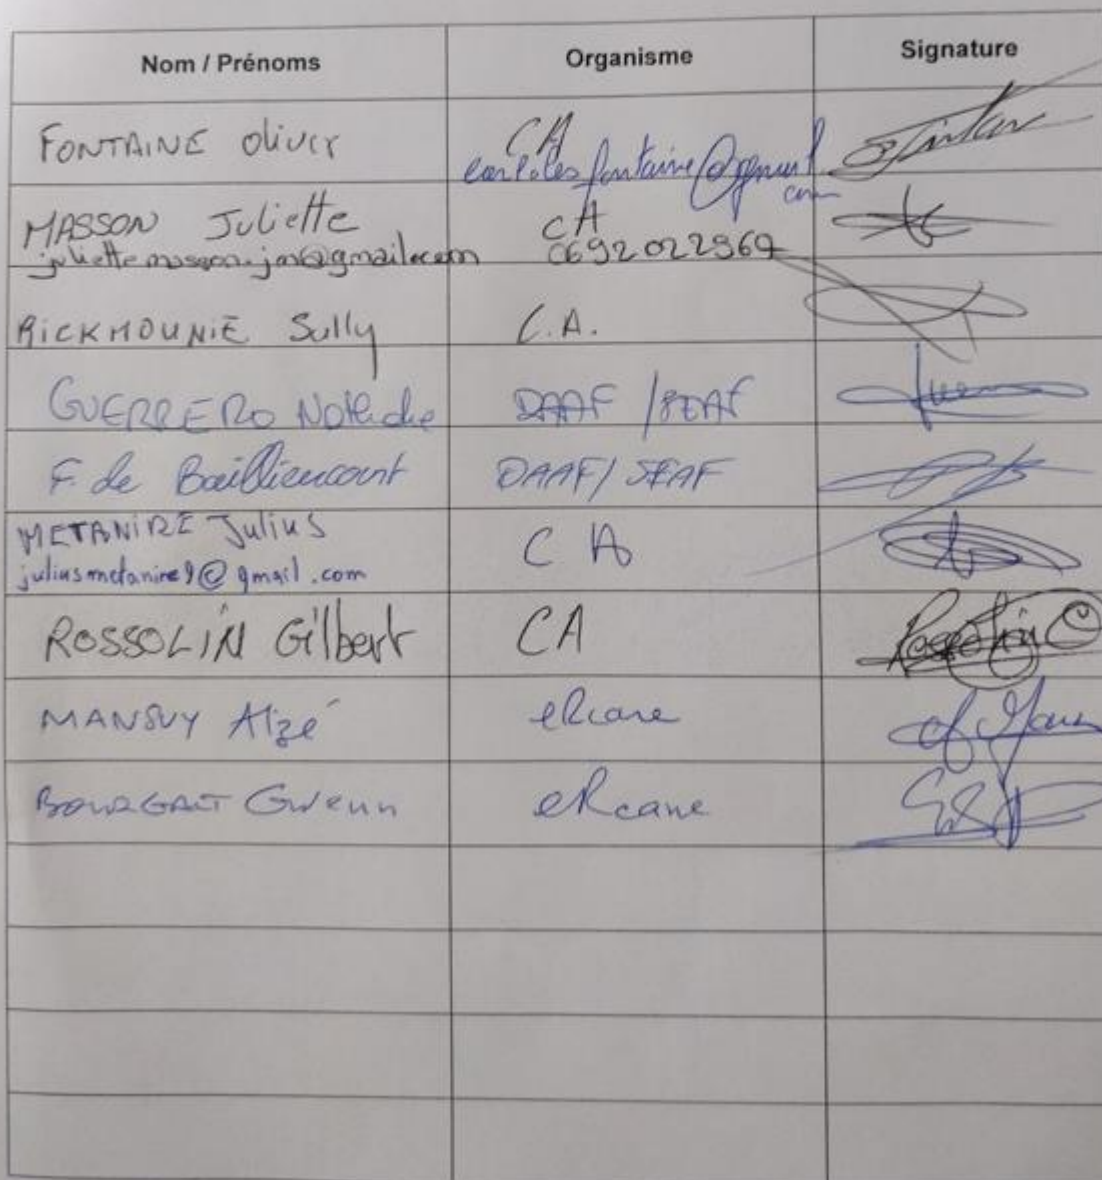 Nom / Prénoms Organisme Signature
FONTAINE Olivier CA
fontaine@gmail
com
MASSON Juliette CA
juliettemasson.jm@gmail.com 0692022969
RICKMOUNIE Sully C.A.
GUERRERO Nathalie DAAF / SEAF
F. de Bailliencourt DAAF / SEAF
METANIRE Julius C A
juliusmetanire9@gmail.com
ROSSOLIN Gilbert CA Rossolin
MANSUY Alzé eRcane
BOURGAUT Gwenn eRcane